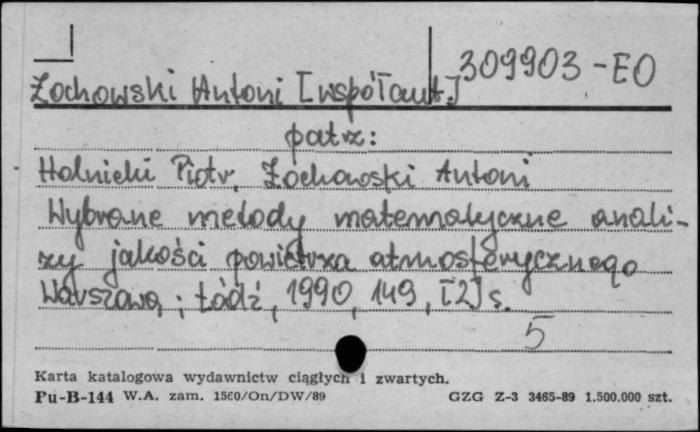 309903-EO
Żochowski Antoni [współaut.]
patrz:
Holnicki Piotr, Żochowski Antoni
Wybrane metody matematyczne anali-
zy jakości powietrza atmosferycznego
Warszawa ; Łódź, 1990, 149, [2] s.
5
Karta katalogowa wydawnictw ciągłych i zwartych.
Pu-B-144 W.A. zam. 1560/On/DW/89 GZG Z-3 3465-89 1.500.000 szt.